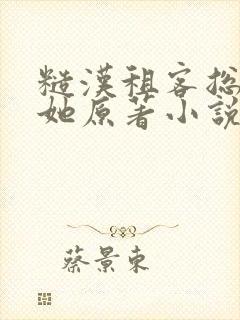 糙漢租客總
她原著小說
蔡景東